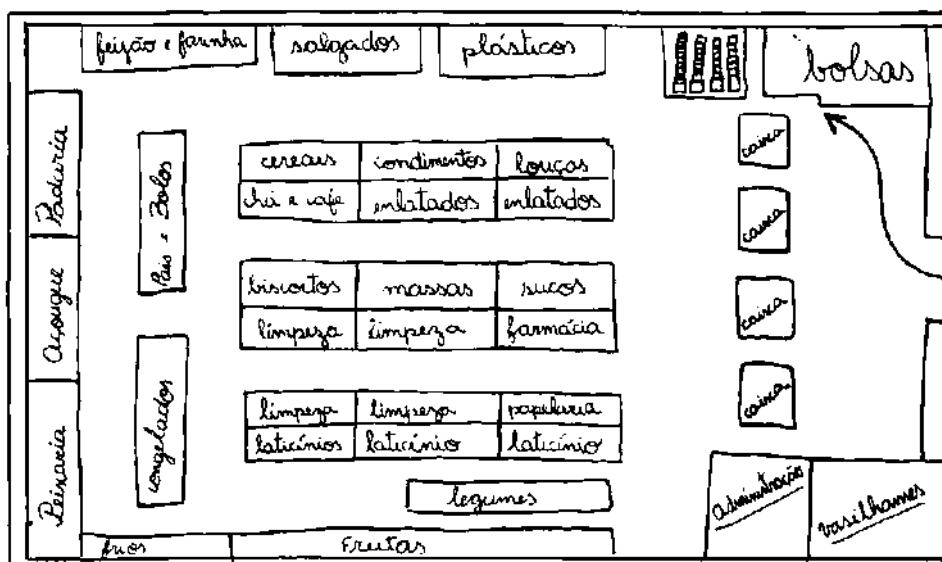 feijão e farinha
salgados
plásticos
bolsas
Padaria
Açougue
Peixaria
Pais e Bolos
congelados
cereais condimentos louças
chá e café enlatados enlatados
biscoitos massas sucos
limpeza limpeza farmácia
limpeza limpeza papelaria
laticínios laticínio laticínio
legumes
frios
Frutas
caixa
caixa
caixa
caixa
administração
vasilhames